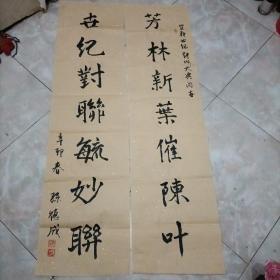 芳林新葉催陳叶
世紀對聯毓妙聯
辛卯春